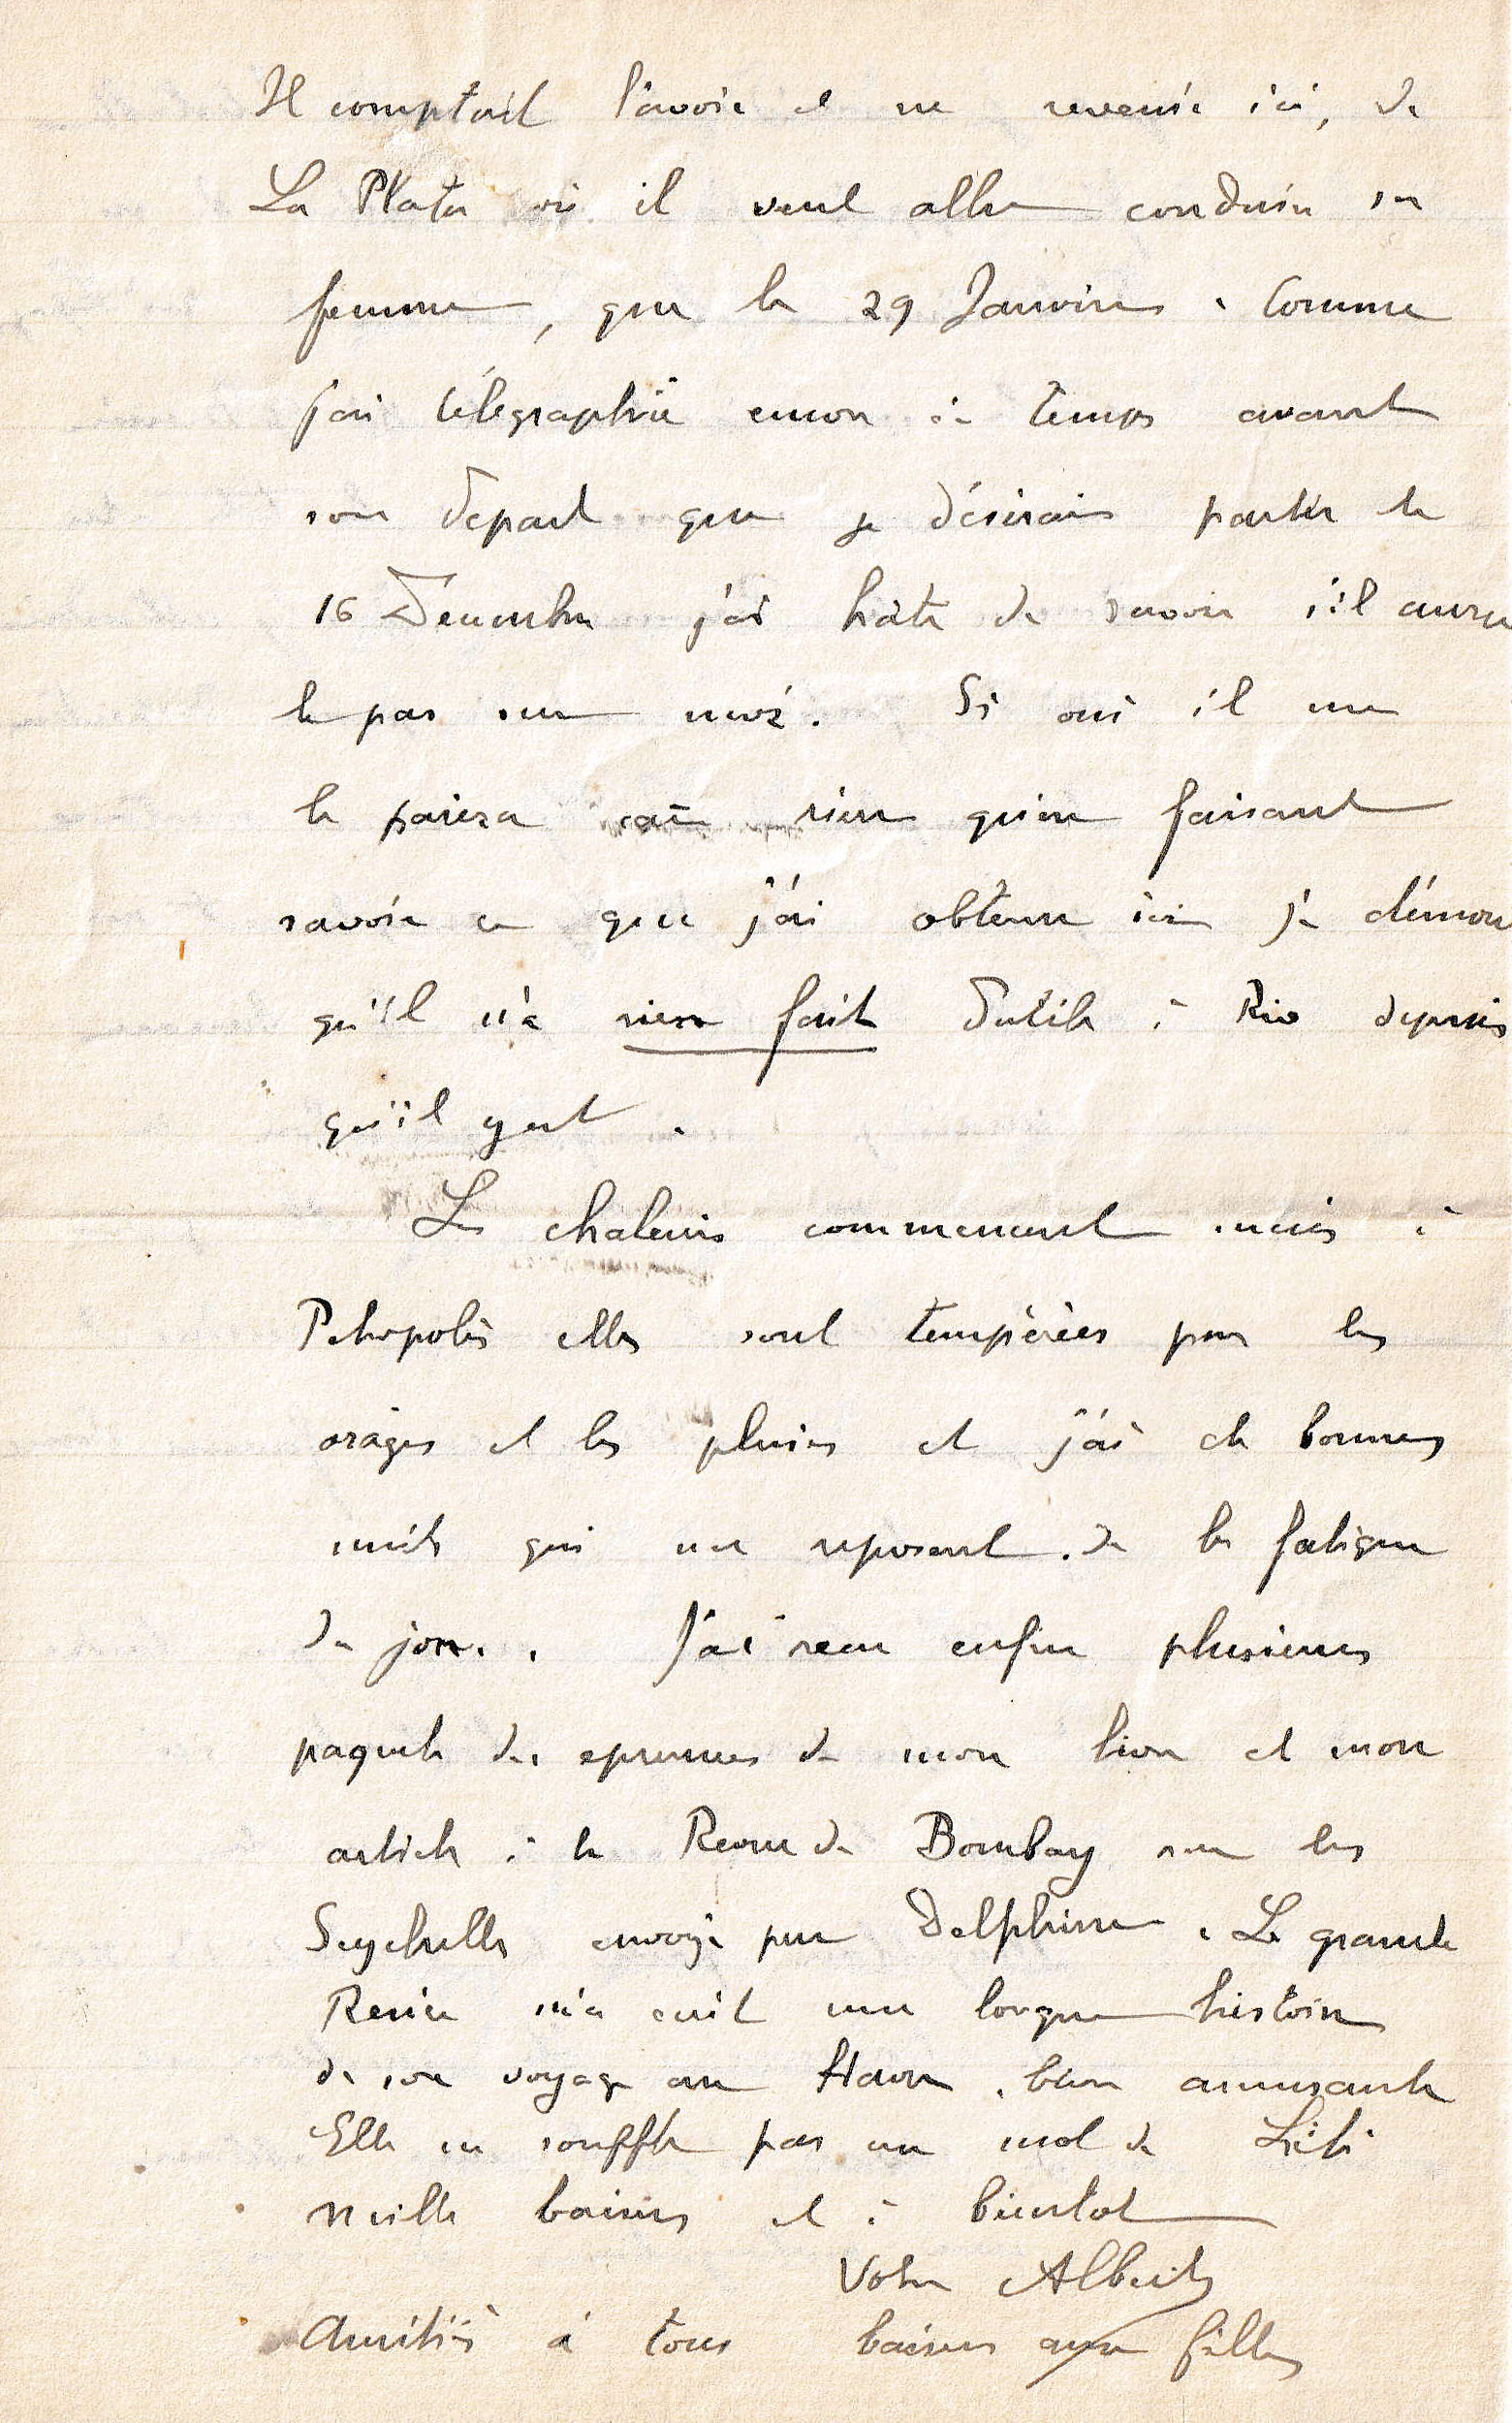 Il comptait l'avoir et ne revenir ici, de
La Plata où il veut aller conduire sa
femme, que le 29 Janvier. Comme
j'ai télégraphié encore à temps avant
son départ que je désirais partir le
16 Décembre j'ai hâte de savoir s'il aura
le pas sur moi. Si oui il me
le paiera car rien qu'en faisant
savoir ce que j'ai obtenu ici je démontre
qu'il n'a rien fait d'utile à Rio depuis
qu'il y est.
Les chaleurs commencent mais à
Petropolis elles sont tempérées par les
orages et les pluies et j'ai de bonnes
nuits qui me reposent de la fatigue
du jour. J'ai recu enfin plusieurs
paquets des epreuves de mon livre et mon
article à la Revue de Bombay sur les
Seychelles envoyé par Delphine. La grande
Renée m'a écrit une longue histoire
de son voyage au Havre, bien amusante
Elle ne souffle pas un mot de Lili
Mille baisers et à bientot
Votre Albert
Amitiés à tous baisers aux filles